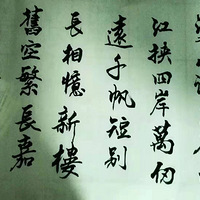 江挾四岸萬仞
遠千帆短别
長相憶新樓
舊空繁長嘉